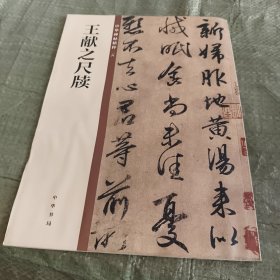 王献之尺牍
中华书局
新婦服地黄湯来似
減眠食尚未佳憂
懸不去心君等前